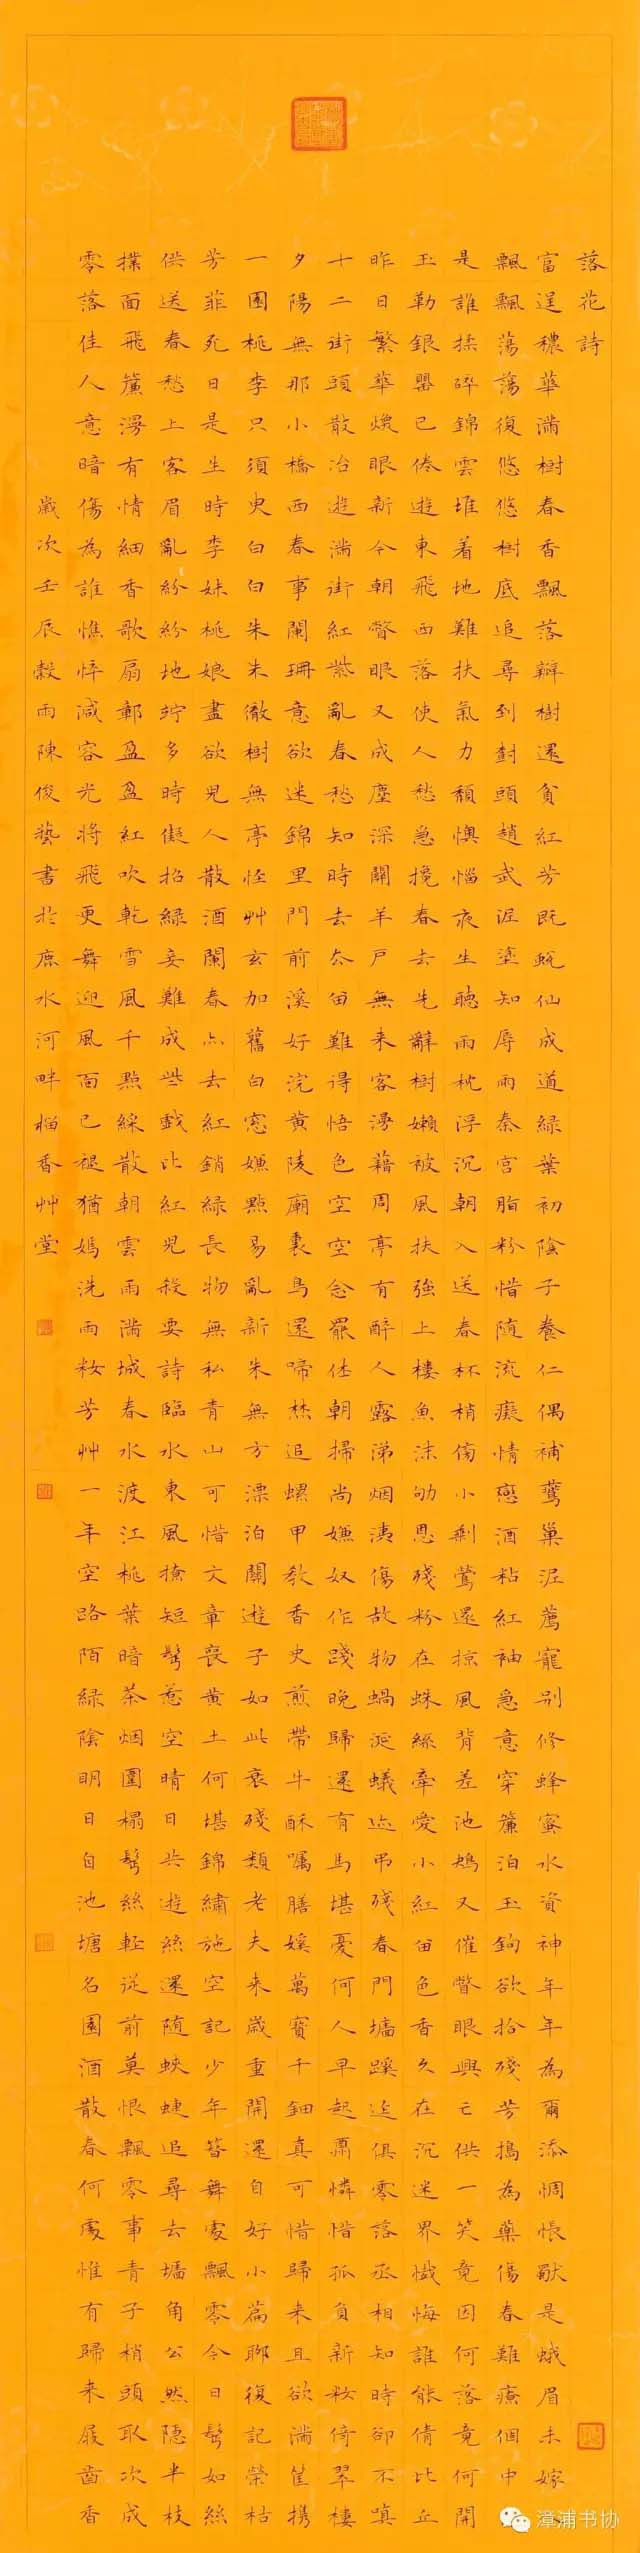 落花詩
富逞穠華滿樹春香飄落瓣樹還貧紅芳既蛻仙成道綠葉初陰子養仁偶補鶯巢泥薦寵別修蜂蜜水資神年年為爾添惆悵獸是蛾眉未嫁人
飄飄蕩蕩復悠悠樹底追尋到樹頭趙武泥塗知辱雨秦宮脂粉惜隨流癡情戀酒粘紅袖急意穿簾泊玉鉤欲拾殘芳搗為藥傷春難療個中愁
是誰揉碎錦雲堆着地難扶氣力頹懊惱夜生聽雨枕浮沉朝入送春杯梢傍小剩鶯還掠風背差池鴆又催瞥眼興亡供一笑竟因何落竟何開
玉勒銀罌已倦遊東飛西落使人愁急攙春去先辭樹嬾被風扶強上樓魚沫劬恩殘粉在蛛絲牽愛小紅留色香久在沉迷界懺悔誰能倩比丘
昨日繁華煥眼新今朝瞥眼又成塵深關羊戶無來客漫藉周亭有醉人露涕烟洟傷故物蝸涎蟻迹弔殘春門墻蹊逕俱零落丞相知時卻不嗔
十二街頭散冶遊滿街紅紫亂春愁知時去去留難得悟色空空念罷休朝掃尚嫌奴作踐晚歸還有馬堪憂何人早起肅憐惜孤負新妝倚翠樓
夕陽無那小橋西春事闌珊意欲迷錦里門前溪好浣黃陵廟裏鳥還啼焚追螺甲教香史煎帶牛酥囑膳媛萬寶千鈿真可惜歸來且欲滿筐攜
一園桃李只須臾白白朱朱徹樹無亭怪艸玄加舊白窓嫌點易亂新朱無方漂泊關遊子如此衰殘類老夫來歲重開還自好小篇聊復記榮枯
芳菲死日是生時李妹桃娘盡欲兒人散酒闌春亦去紅銷綠長物無私青山可惜文章喪黃土何堪錦繡施空記少年簪舞處飄零今日鬢如絲
供送春愁上客眉亂紛紛地竚多時儗招綠妾難成些戲比紅兒殺要詩臨水東風撩短鬢惹空晴日共遊絲還隨蛺蝶追尋去墻角公然隱半枝
撲面飛簾漫有情細香歌扇鄣盈盈紅吹乾雪風千點綵散朝雲雨滿城春水渡江桃葉暗茶烟圍榻鬢絲輕從前莫恨飄零事青子梢頭取次成
零落佳人意暗傷為誰憔悴減容光將飛更舞迎風面已褪猶嫣洗雨妝芳艸一年空路陌綠陰明日自池塘名園酒散春何處惟有歸來屐齒香
歲次壬辰穀雨陳俊藝書於鹿水河畔榴香艸堂
漳浦书协